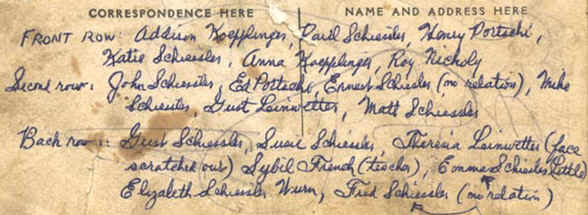 CORRESPONDENCE HERE NAME AND ADDRESS HERE
FRONT ROW: Addison Koepplinger, Paul Schiessler, Henry Portsche,
Katie Schiessler, Anna Koepplinger, Roy Nichols
Second row: John Schiessler, Ed Portsche, Ernest Schiessler (no relation), Mike
Schiessler, Gust Leinwetter, Matt Schiessler
Back row: Gust Schiessler, Susie Schiessler, Theresia Leinwetter (face
scratched out) Sybil French (teacher), Emma Schiessler Little
Elizabeth Schiessler Wurm, Fred Schiessler (no relation)